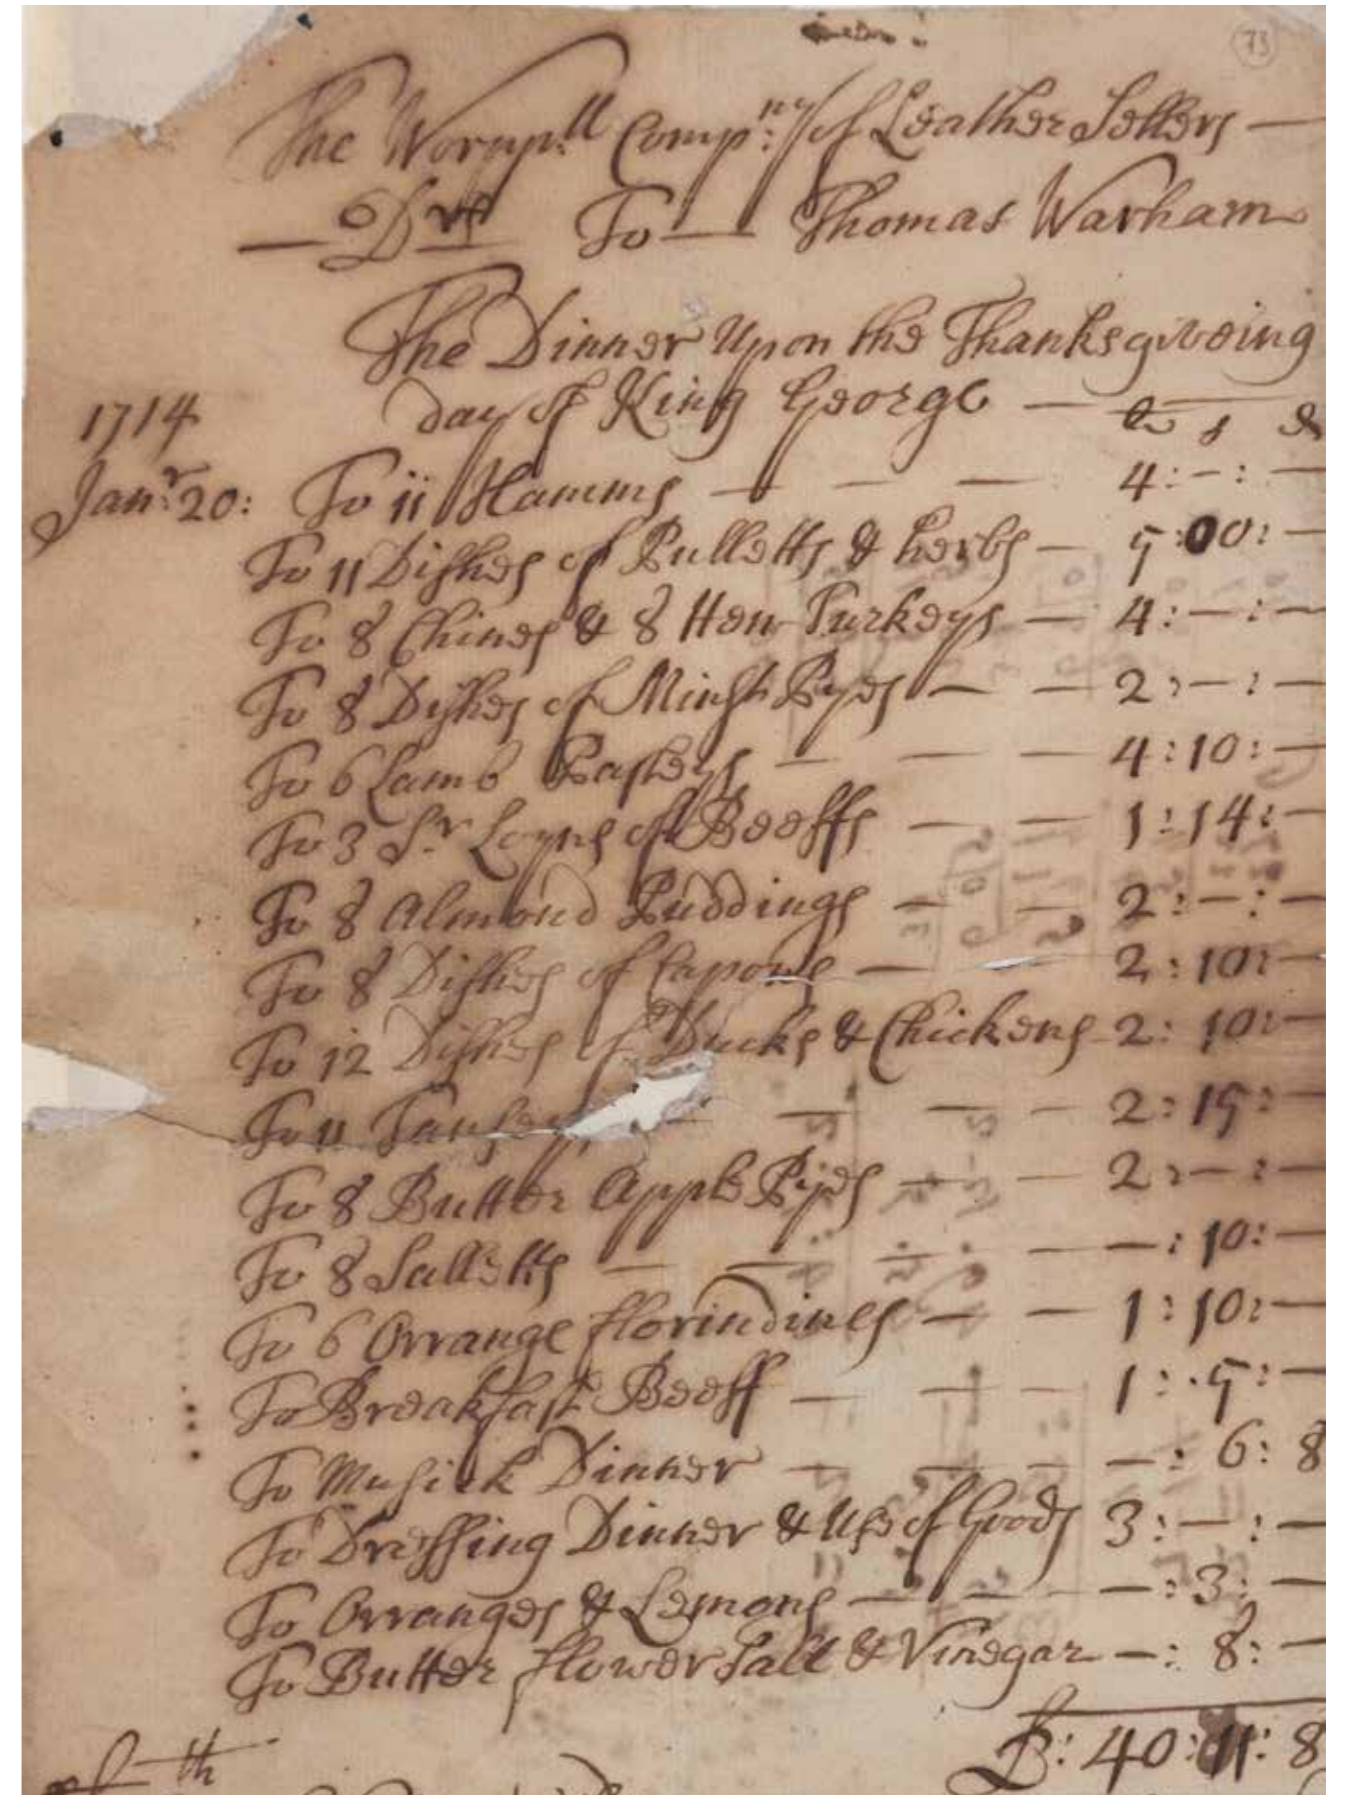 73
The Worspll Compny of Leather Sellers —
— Drs To — Thomas Warham
The Dinner Upon the Thanksgiveing
day of King George —
1714
li s d
Janr 20: To 11 Hamms — — — — 4:-:—
To 11 Dishes of Pulletts & herbs — 5:00:—
To 8 Chines & 8 Hen Turkeys — 4:—:—
To 8 Dishes of Minst Pyes — — 2:—:—
To 6 Lamb Pasteys — — — 4:10:—
To 3 Sr Loyns of Beeffs — — 1:14:—
To 8 Almond Puddings — — 2:—:—
To 8 Dishes of Capons — — 2:10:—
To 12 Dishes of Ducks & Chickens 2:10:—
To 11 Tanseys — — — 2:15:—
To 8 Butter Apple Pyes — — 2:—:—
To 8 Salletts — — — — —:10:—
To 6 Orrange florindines — — 1:10:—
To Breakfast Beeff — — — 1:5:—
To Musick Dinner — — — —:6:8
To Dressing Dinner & Use of Goods 3:—:—
To Orranges & Lemons — — — —:3:—
To Butter flower Salt & Vinegar —:8:—
£:40:11:8